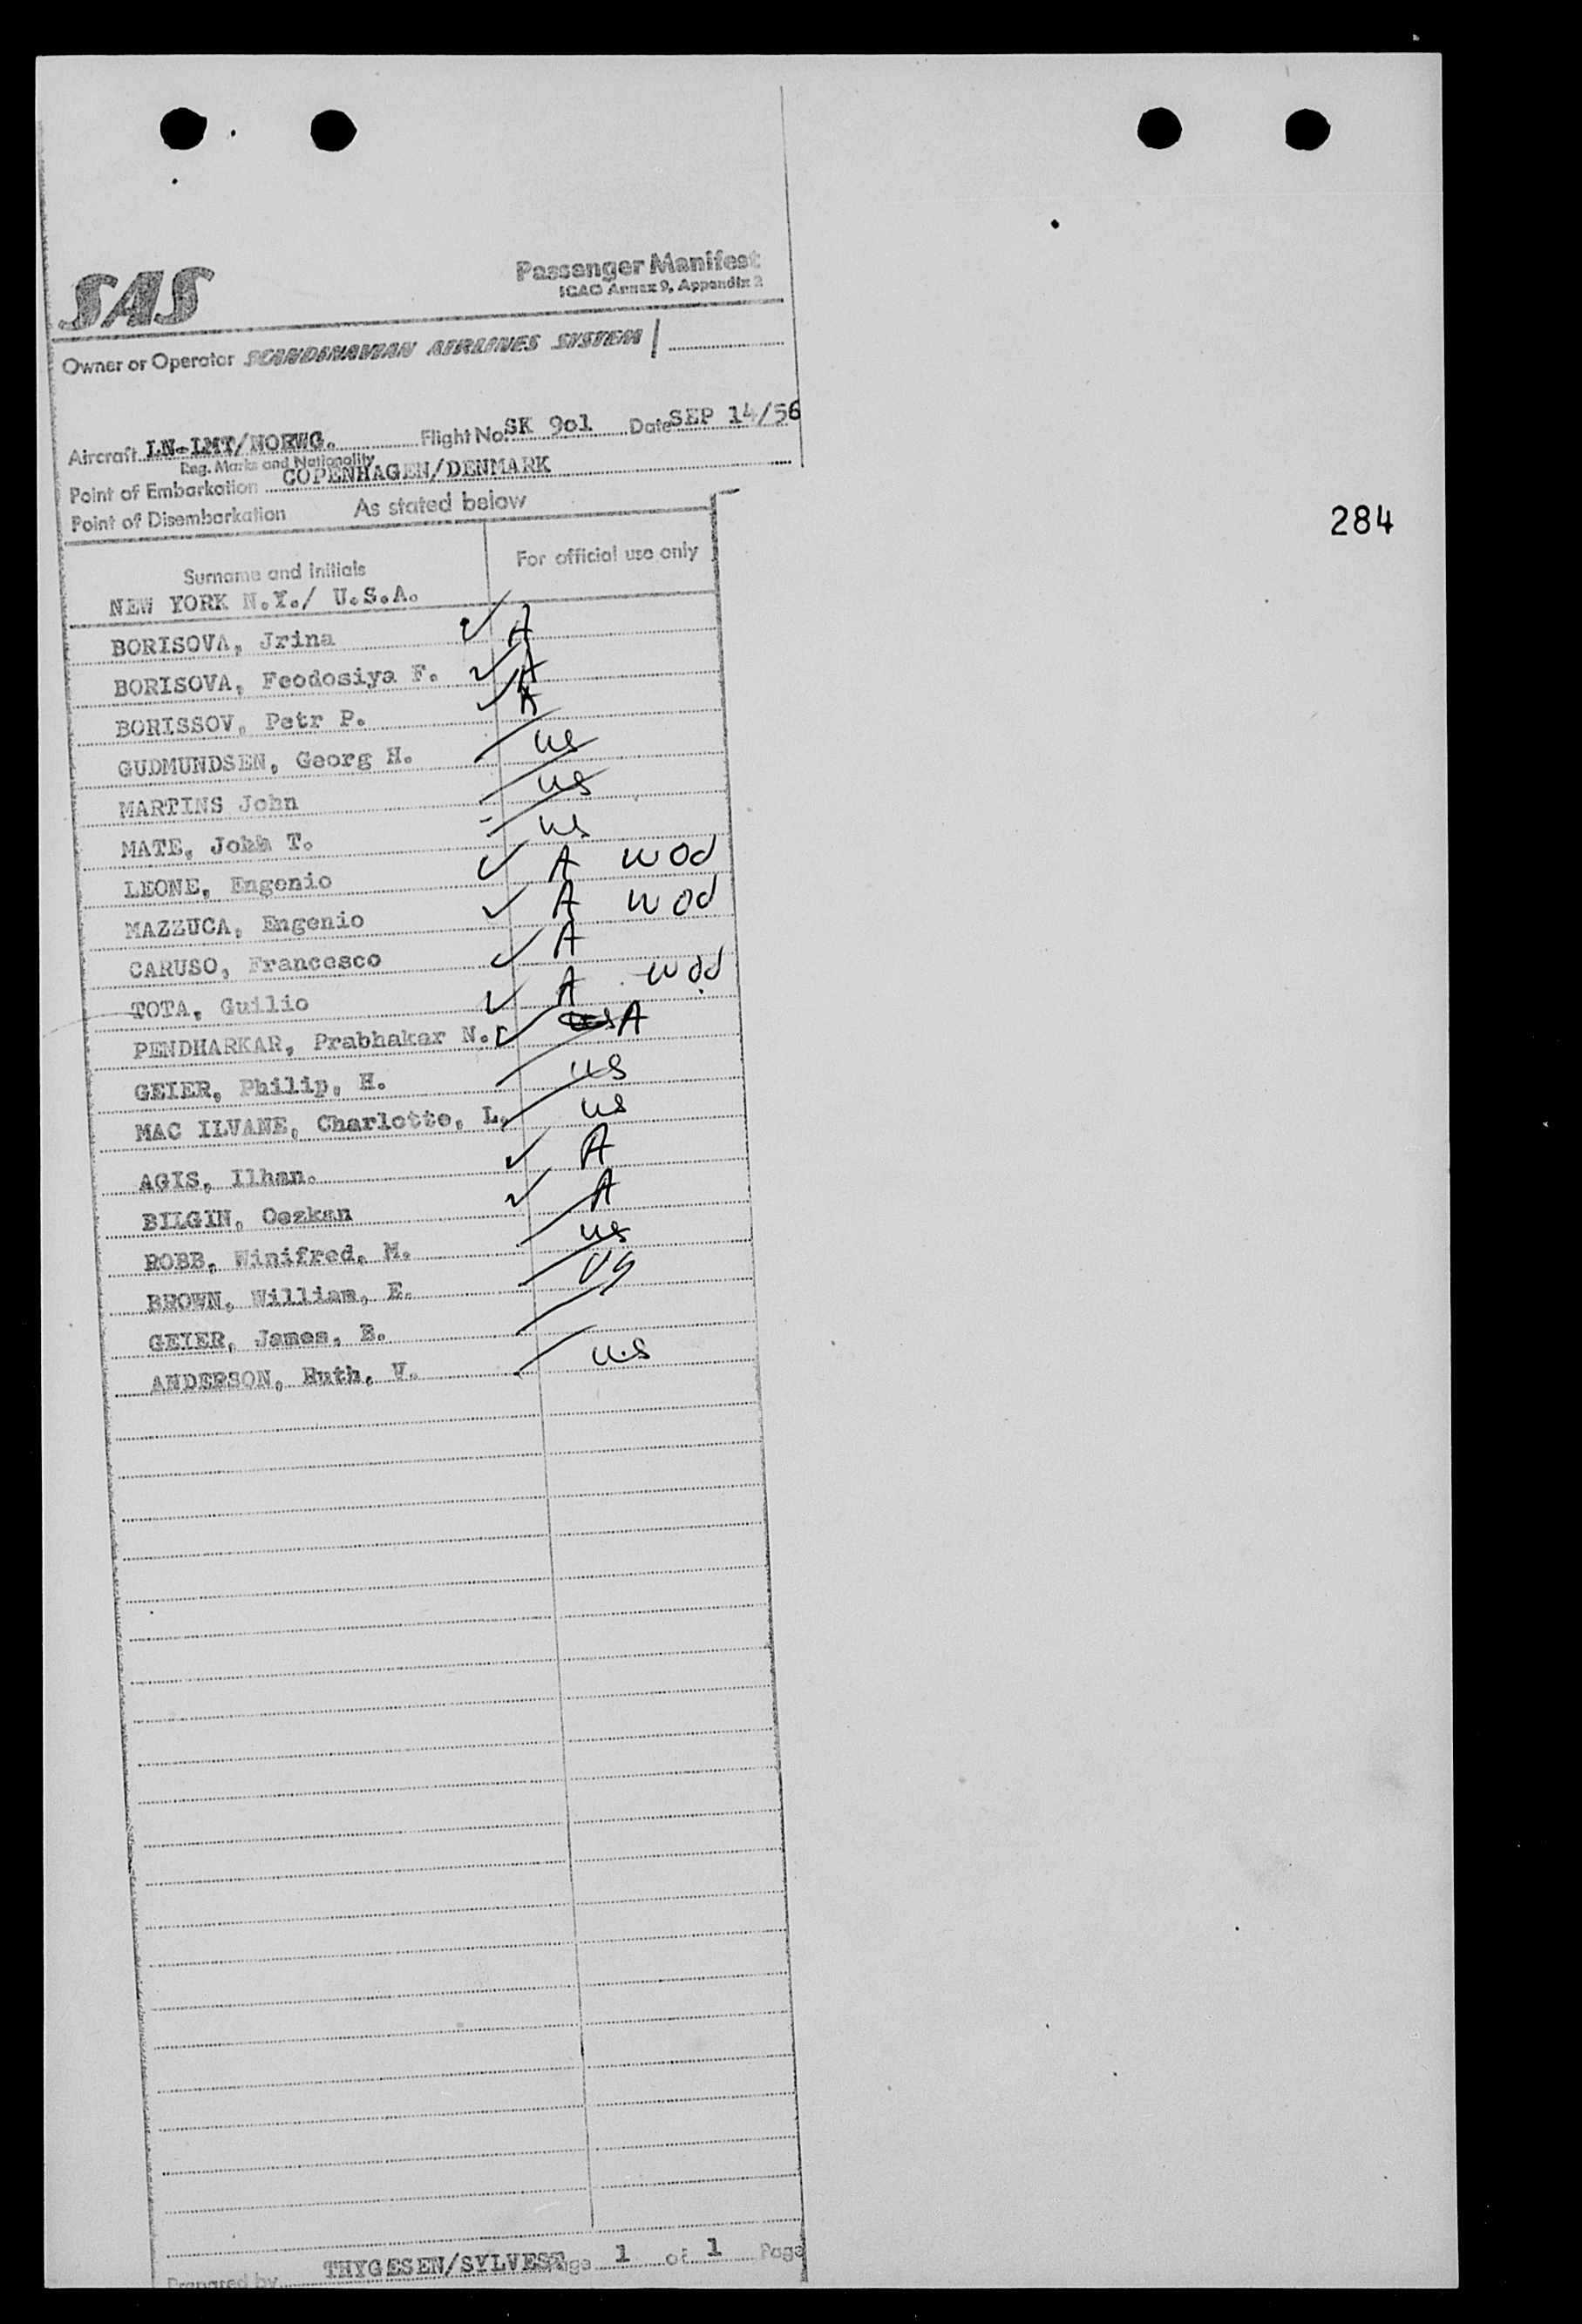 SAS
Passenger Manifest
ICAO Annex 9, Appendix 2
Owner or Operator SCANDINAVIAN AIRLINES SYSTEM
Aircraft LN-LMT/NORWG. Flight No. SK 9o1 Date SEP 14/56
Reg. Marks and Nationality
Point of Embarkation COPENHAGEN/DENMARK
Point of Disembarkation As stated below
284
Surname and initials For official use only
NEW YORK N.Y./ U.S.A.
BORISOVA, Jrina ✓ A
BORISOVA, Feodosiya F. ✓ A
BORISSOV, Petr P. ✓ A
GUDMUNDSEN, Georg H. us
MARTINS John us
MATE, John T. us
LEONE, Engenio ✓ A WOd
MAZZUCA, Engenio ✓ A WOd
CARUSO, Francesco ✓ A
TOTA, Guilio ✓ A WOd
PENDHARKAR, Prabhakar N. ✓ us A
GEIER, Philip, H. us
MAC ILVANE, Charlotte, L. us
AGIS, Ilhan. ✓ A
BILGIN, Oezkan ✓ A
ROBB, Winifred, M. us
BROWN, William, E. US
GEIER, James, B.
ANDERSON, Ruth, V. us
Prepared by THYGESEN/SYLVEST Page 1 of 1 Page